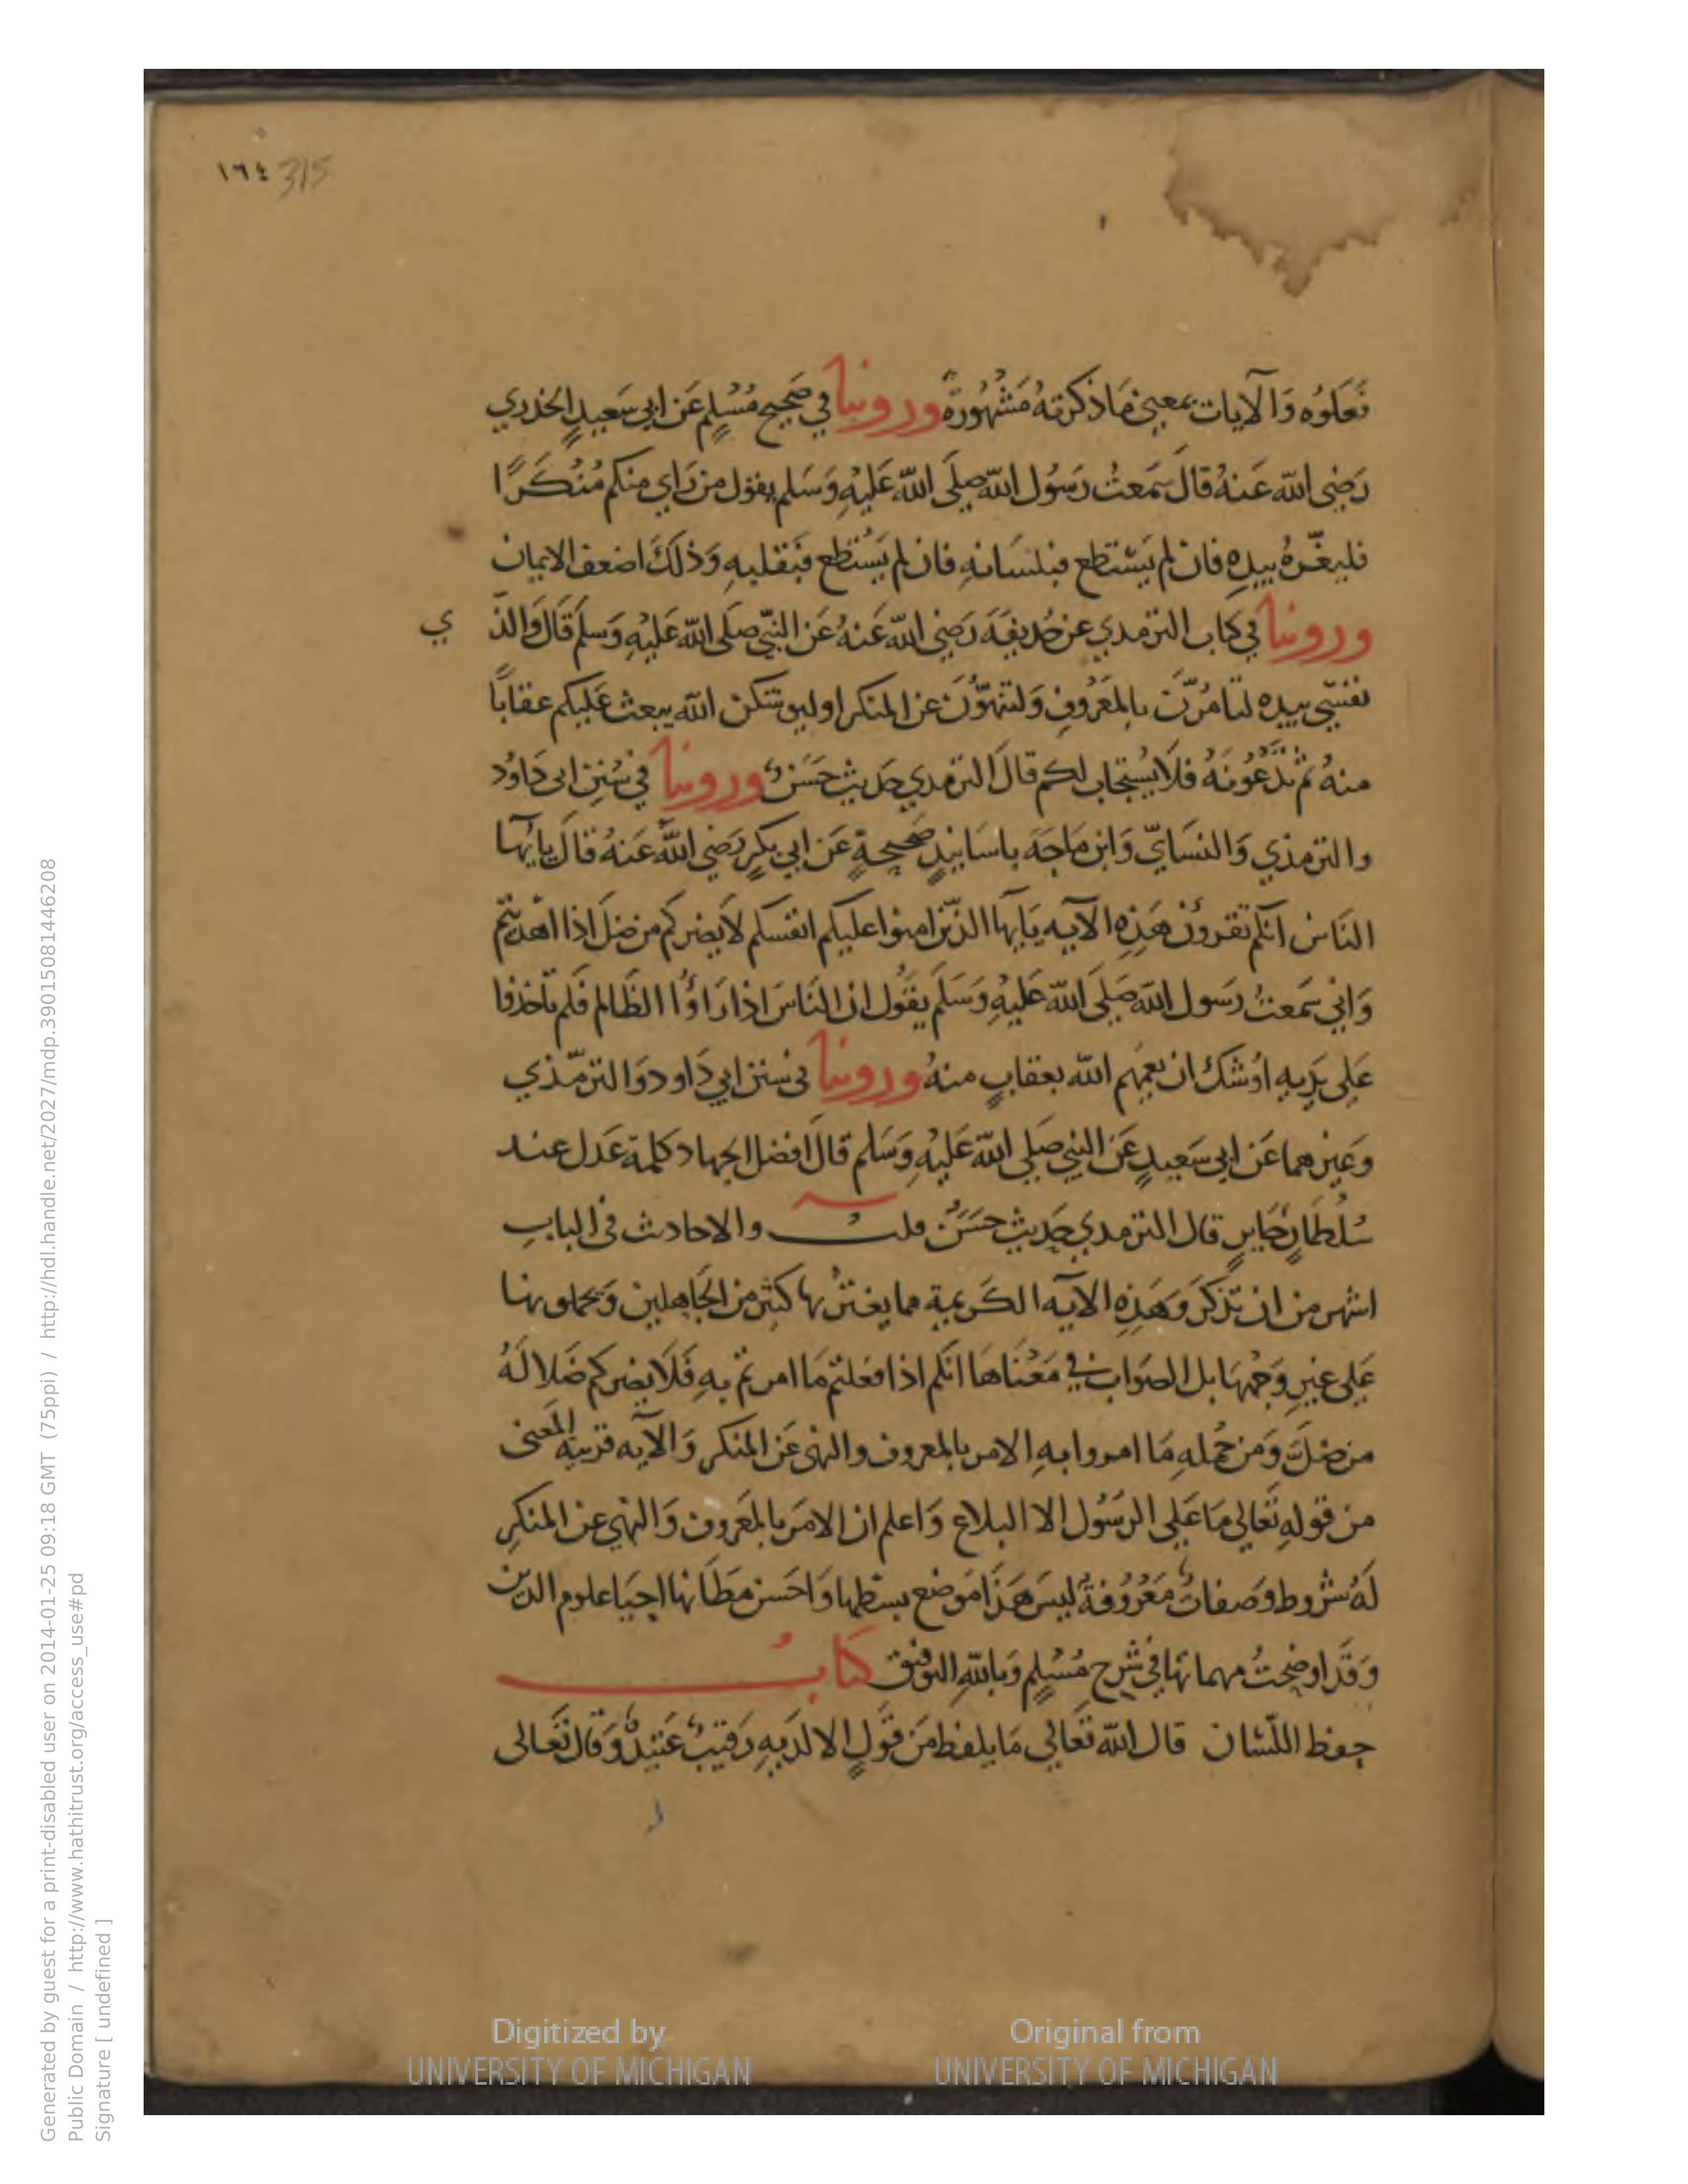 ١٦٤ 315
فَعَلوُه وَالآيات بمعنى مَا ذكرته مَشْهُورَةٌ وروينا في صَحيح مُسْلِم عَن ابي سَعيدٍ الخدري
رَضِي الله عَنهُ قالَ سَمَعتُ رَسُول الله صَلَى الله عَليْهِ وَسَلم يقول من رَاي منكم مُنْكَرًا
فليغَيّرهُ بيدِهِ فان لم يَسْتَطع فبلسَانهِ فان لم يَسْتطع فَبقلبهِ وَذلكَ اضعف الايمان
وروينا في كتاب الترمدي عن حُديفَه رَضِي الله عَنهُ عَن النبّي صَلَى الله عَليْهِ وَسلمَ قَالَ وَالذ ي
نفسِي بيدِه لتامُرّنَ بالمَعْرُوفِ وَلتنهَوُّنَ عن المنكر اوليوشكن الله يبعث عَليكم عقابًا
منهُ ثم تَدْعُونَهُ فلَا يُسْتجَاب لكم قالَ الترمدي حَديث حَسَنٌ وروينا في سُنِن ابى دَاوُد
والترمذي وَالنسَايّ وَابن مَاجَة باسَانيدٍ صَحيحةٍ عَن ابي بكرٍ رَضي اللهُ عَنهُ قالَ يايّها
النَاس انكم تقرون هَذِهِ الآيه يَايها الذّين امنوا عليكم انفسكم لَا يضركم من ضلَ اذا اهديتم
وَاني سَمعتُ رَسول الله صَلَى الله عَليْهِ وَسَلَم يقُول ان النَاسَ اذا رَاوُا الظَالم فَلم يَاخذوا
عَلى يَدَيهِ اوْشكَ ان يَعمَهم الله بعقابٍ منهُ وروينا في سنن ابي دَاود وَالترمّذي
وَغيرهما عَن ابي سَعيدٍ عَن النبي صَلى الله عَليْهِ وَسَلم قالَ افضل الجهاد كلمة عَدل عند
سُلطَانٍ جَايرٍ قال الترمدي حَديث حَسَنٌ قلت والاحادث في البابِ
اشهر من ان تذكَر وَهَذِهِ الآيه الكَريمة مما يغتر بها كثير من الجَاهلين وَيحملونها
عَلى غيرِ وَجْهَهَا بل الصَوَاب في مَعْنَاهَا انكم اذا فعلتم مَا امرتم به فَلَا يضركم ضَلالةُ
من ضَلَّ وَمن جملهِ مَا امروا بهِ الامر بالمعروف والنهى عَن المنكر وَالآيه قريبة المَعنى
من قولهِ تَعَالي مَا عَلى الرسُول الا البلاع وَاعلم ان الامَر بالمَعَروف وَالنهي عن المنكرِ
لَهُ شروط وَصَفاتٌ مَعْرُوفةٌ ليسَ هَذَا مَوضع بسْطها وَاحسن مظَانها احيَا علوم الدين
وَقَد اوضحتُ مهماتها في شَرح مُسْلِم وَبالله التوفيق كتابُ
حِفظ اللّسَان قال الله تَعَالي مَا يلفظ مَن قَولٍ الا لدَيهِ رَقيبٌ عَتيدٌ وَقال تَعَالى
Digitized by
UNIVERSITY OF MICHIGAN
Original from
UNIVERSITY OF MICHIGAN
Generated by guest for a print-disabled user on 2014-01-25 09:18 GMT (75ppi) / http://hdl.handle.net/2027/mdp.39015081446208
Public Domain / http://www.hathitrust.org/access_use#pd
Signature [ undefined ]